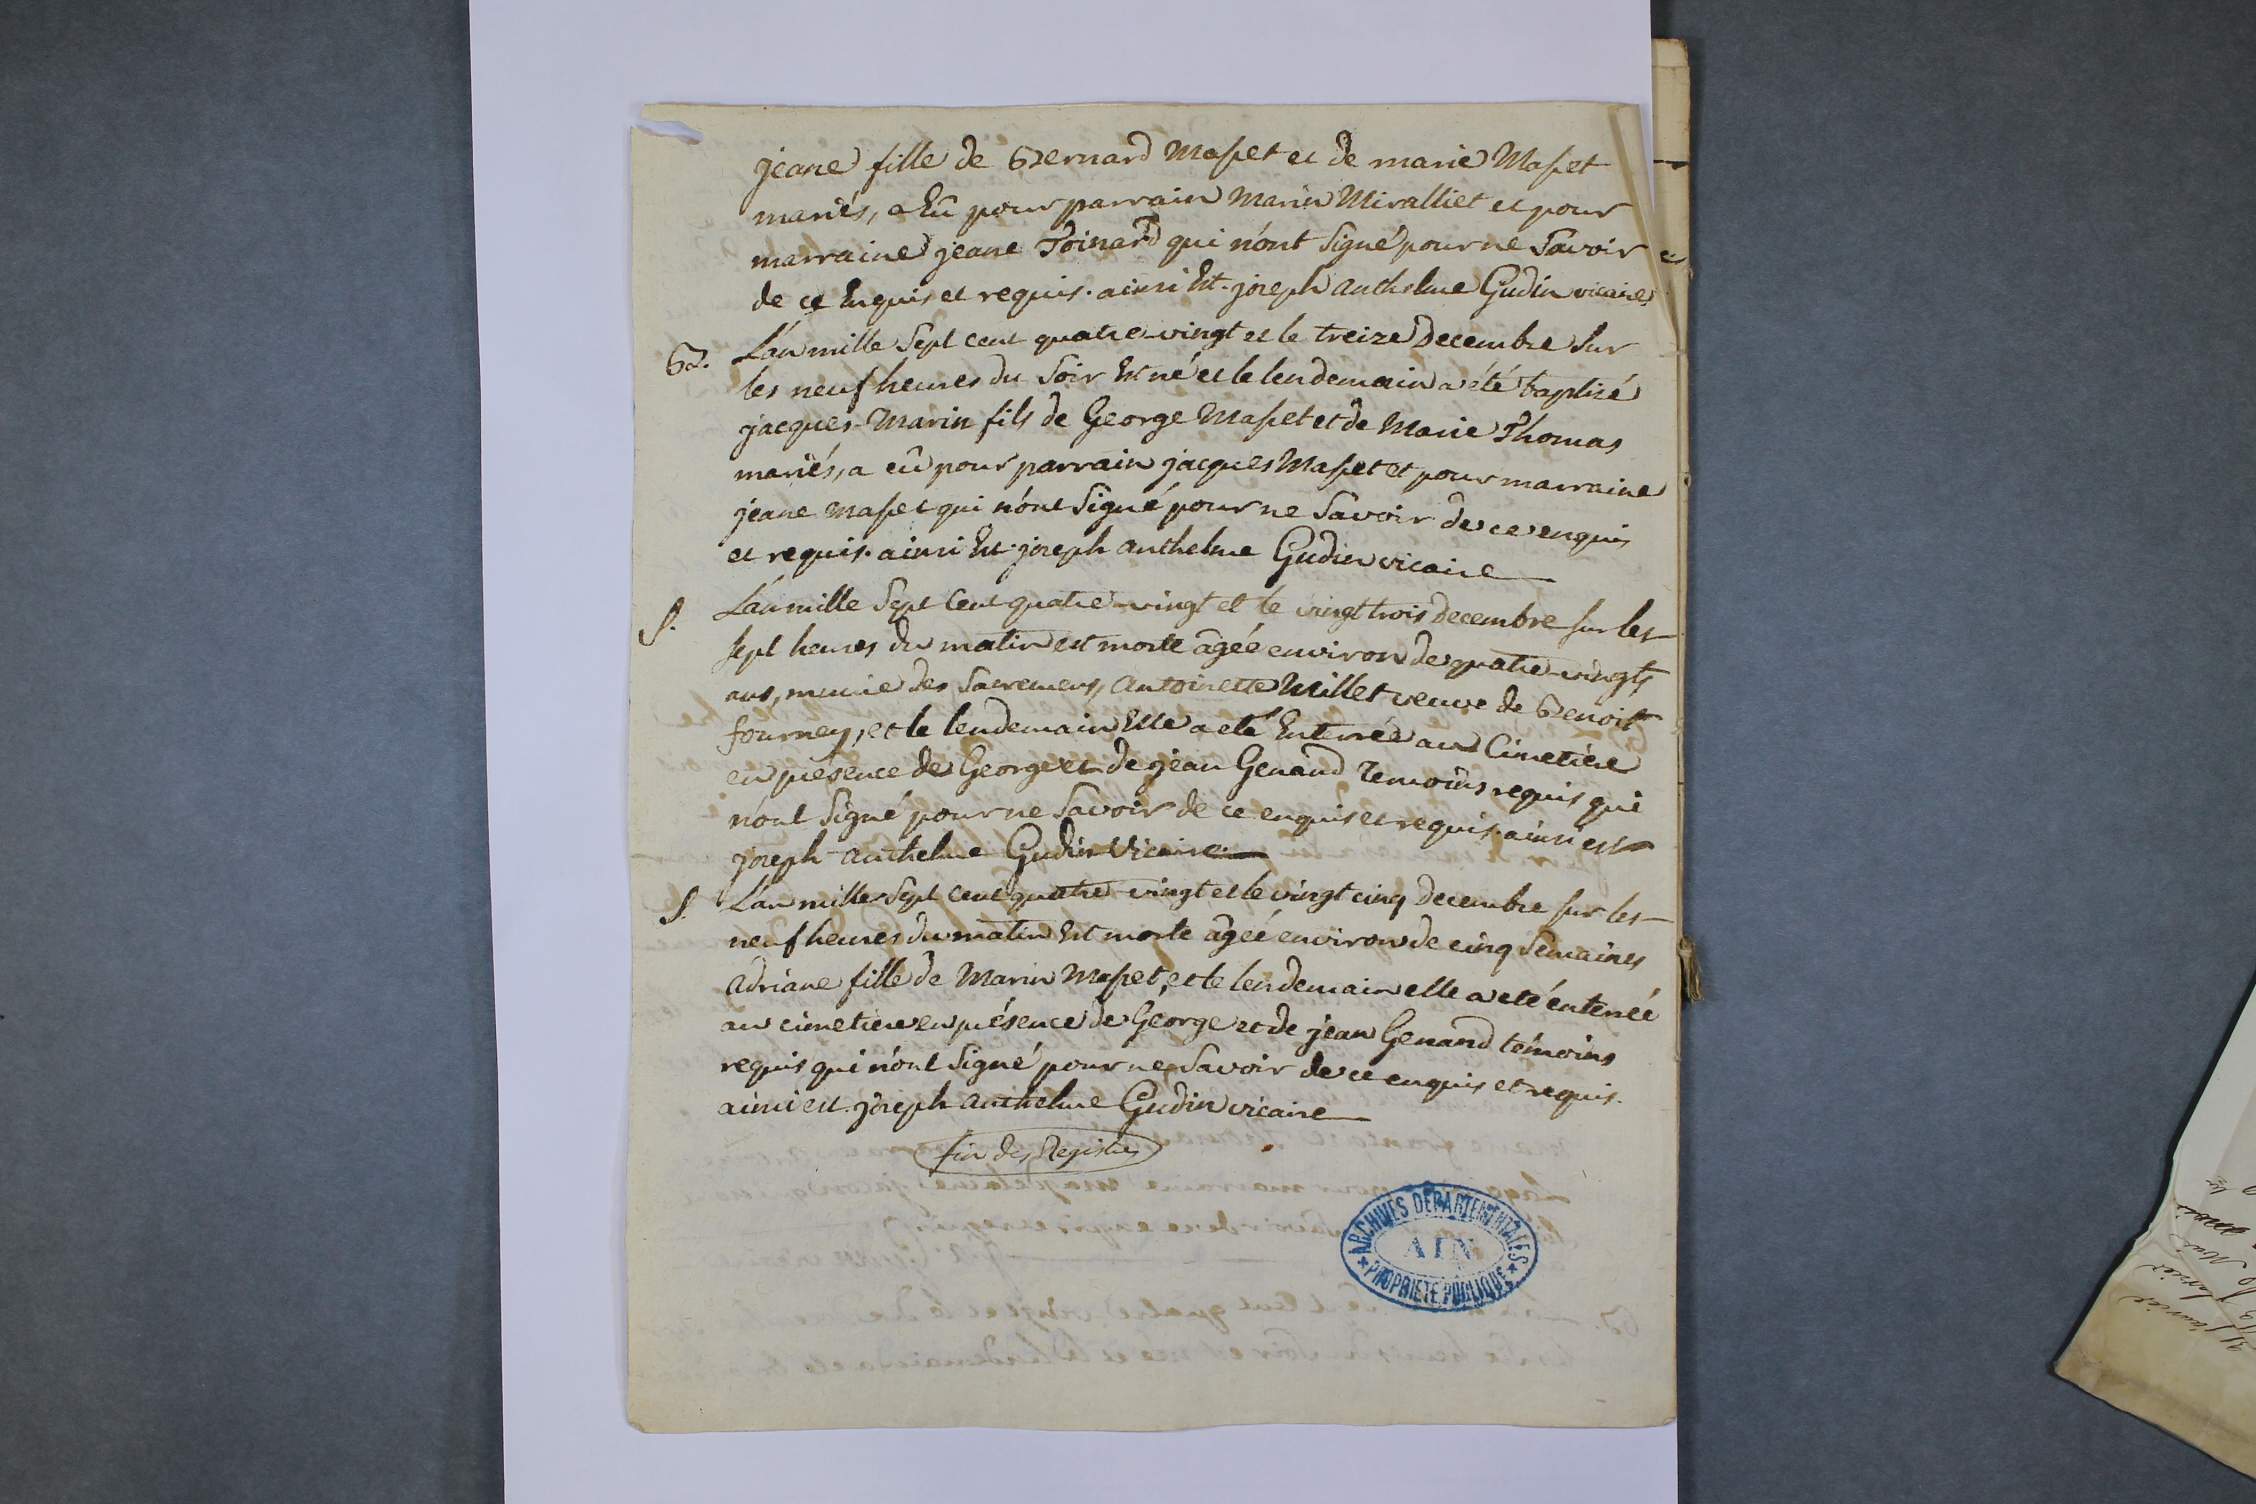 jeane fille de Bernard Masset et de marie Masset
mariés, a Eû pour parrain Marin Miralliet et pour
marraine jeane Toinard qui n'ont Signé pour ne Savoir
de ce Enquis et requis. ainsi Est. joseph anthelme Gudin vicaire
B. L'an mille Sept cent quatre-vingt et le treize Decembre Sur
les neuf heures du Soir Est né et le lendemain a été baptisé
jacques-Marin fils de George Masset et de Marie Thomas
mariés, a eû pour parrain jacques Masset et pour marraine
jeane masset qui n'ont Signé pour ne Savoir de ce enquis
et requis. ainsi Est. joseph anthelme Gudin vicaire
S. L'an mille Sept Cent quatre-vingt et le vingt trois Decembre sur les
sept heures du matin est morte agée environ de quatre-vingts
ans, munie des Sacremens, Antoinette Millet veuve de Benoit
fourney, et le lendemain Elle a eté Enterrée au Cimetière
en présence de George et de jean Genand Temoins requis qui
n'ont Signé pour ne Savoir de ce enquis et requis. ainsi est
joseph-anthelme Gudin Vicaire
S. L'an mille Sept Cent quatre-vingt et le vingt cinq decembre sur les
neuf heures du matin Est morte agée environ de cinq Semaines
Adriane fille de Marin Masset, et le lendemain elle a eté enterrée
au cimetiere en présence de George et de jean Genand témoins
requis qui n'ont Signé pour ne Savoir de ce enquis et requis.
ainsi est. joseph anthelme Gudin vicaire
fin des Registres
ARCHIVES DÉPARTEMENTALES
AIN
* PROPRIÉTÉ PUBLIQUE *